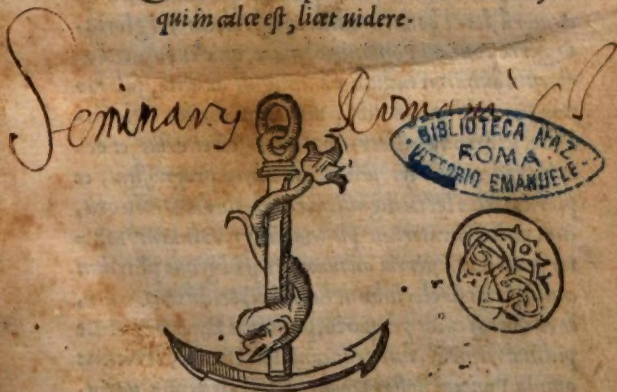 qui in calce est, licet uidere.
Seminary Romani
BIBLIOTECA NAZ.
ROMA
VITTORIO EMANUELE